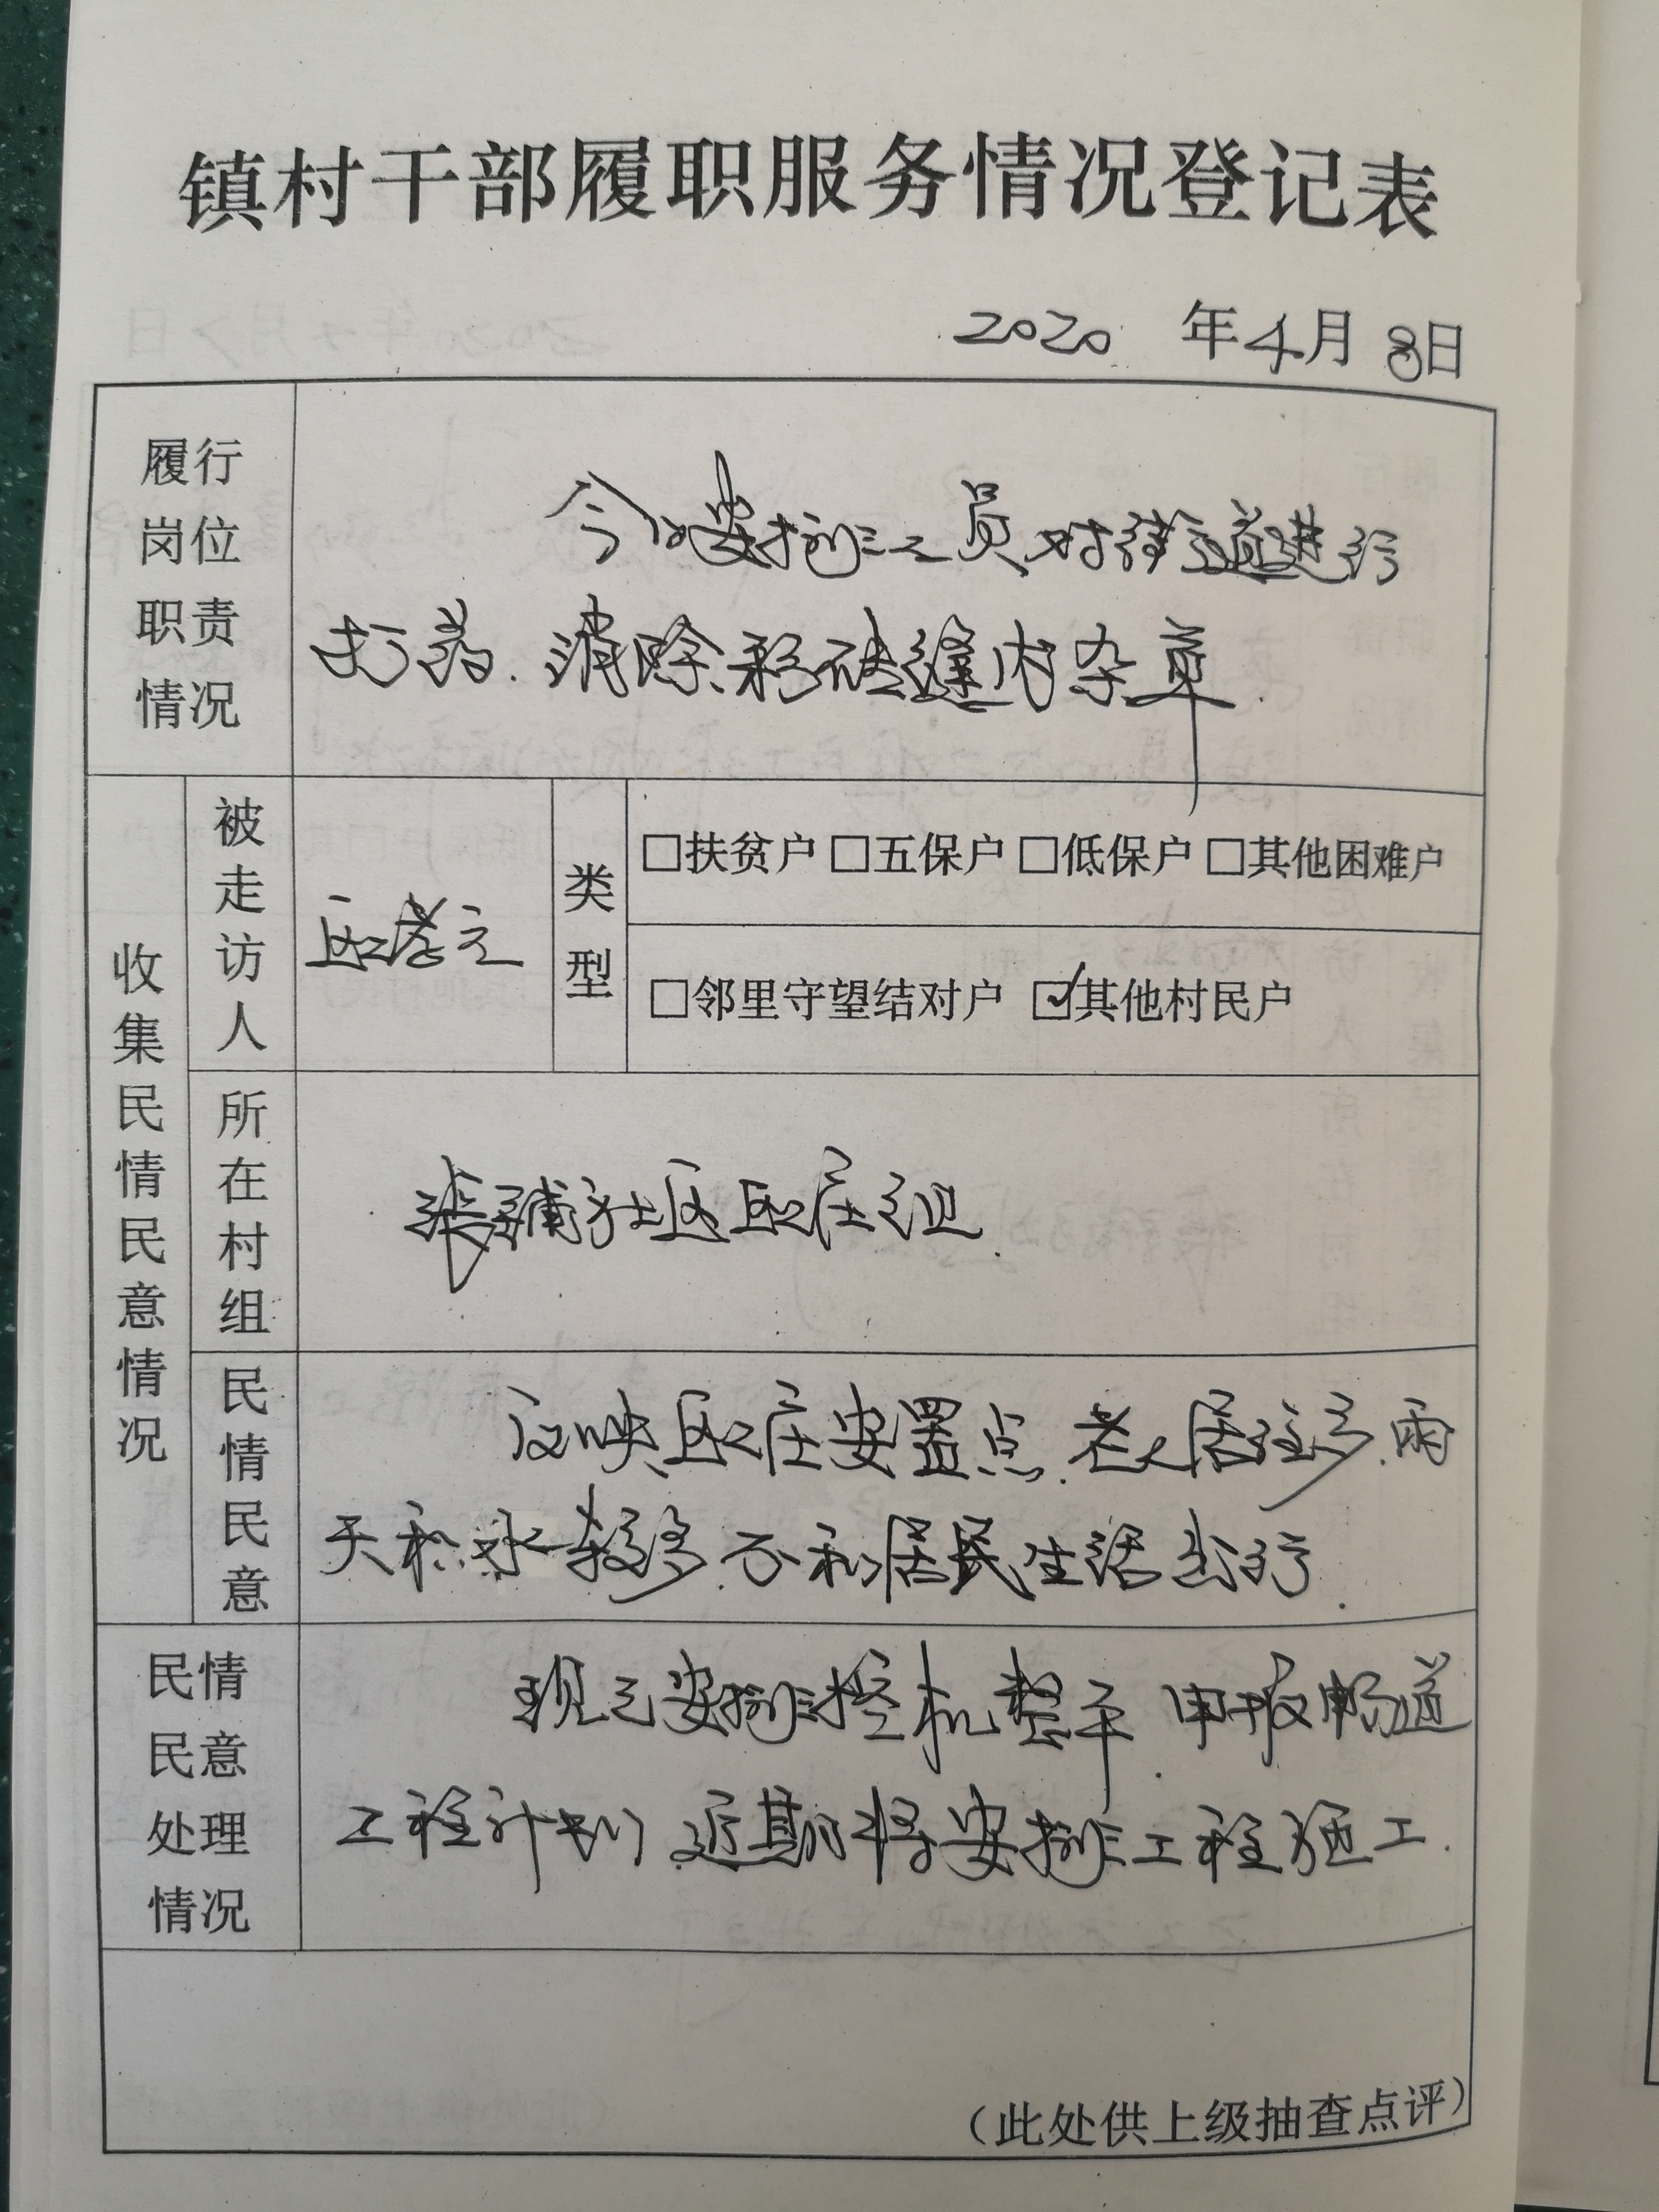 镇村干部履职服务情况登记表
2020年4月8日
履行
岗位
职责
情况
今日安排工员对街道进行
打药.消除彩砖缝内杂草.
收集民情民意情况
被走访人
类型
□扶贫户 □五保户 □低保户 □其他困难户
□邻里守望结对户 ☑其他村民户
所在村组
张铺社区区庄组.
民情民意
反映区庄安置点.老人居住多.雨
天积水较多.不利居民生活出行.
民情
民意
处理
情况
现已安排挖机整平.申报畅通
工程计划.近期将安排工程施工.
(此处供上级抽查点评)